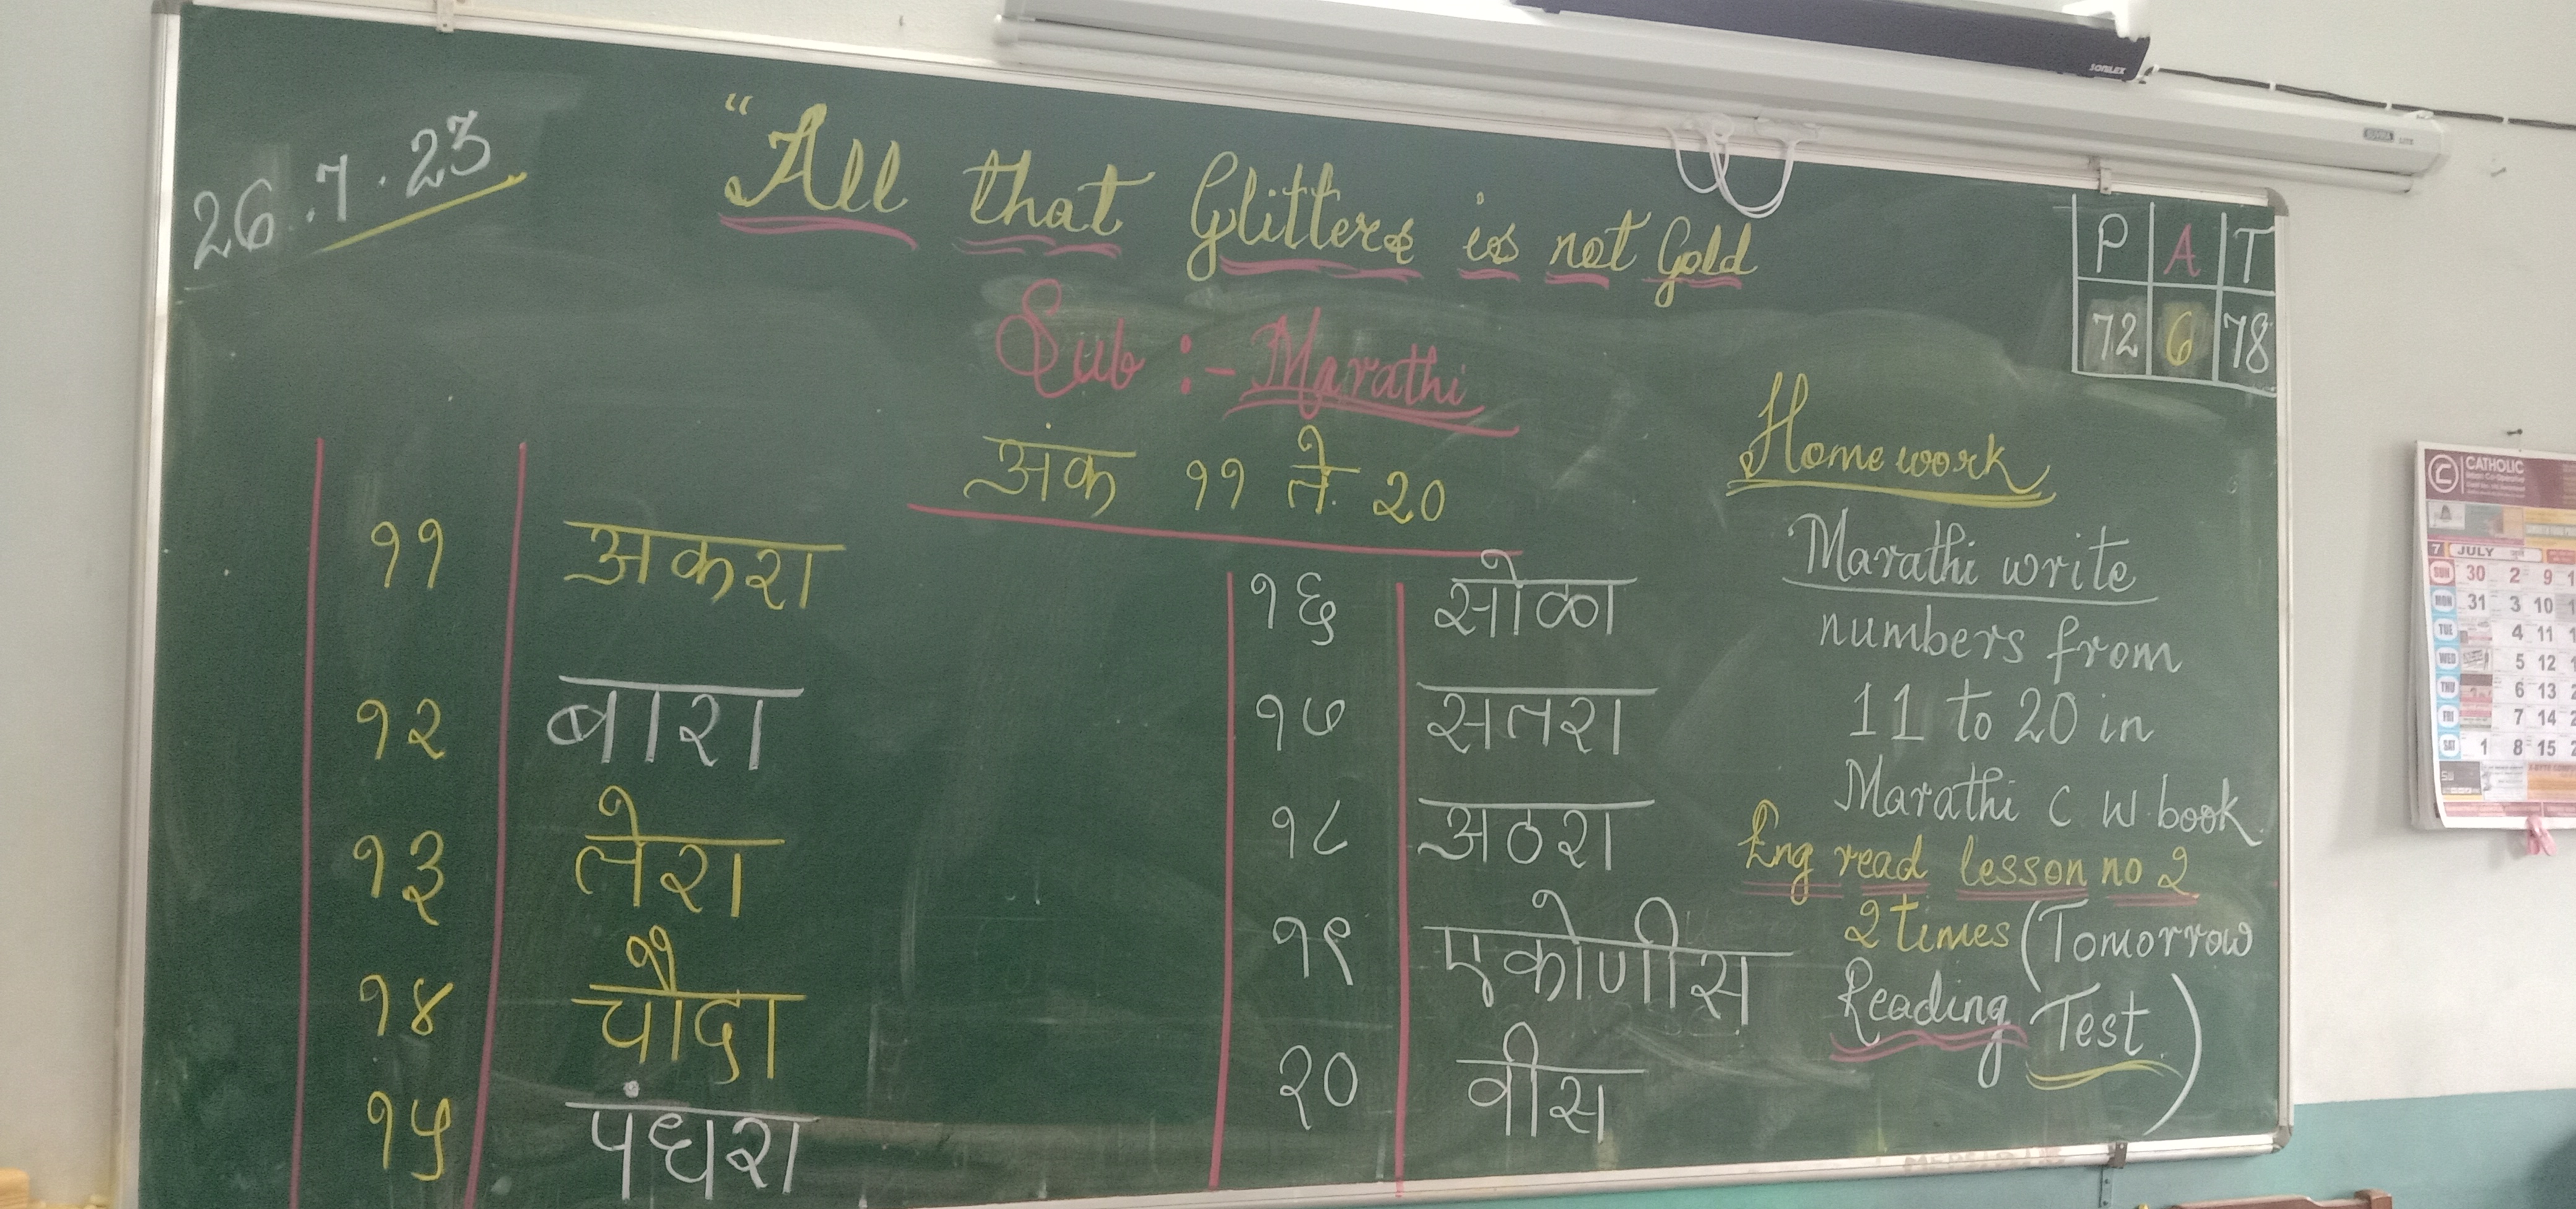 26.7.23
"All that Glitters is not Gold
P A T
72 6 78
Sub :- Marathi
अंक ११ ते २०
११ अकरा
१२ बारा
१३ तेरा
१४ चौदा
१५ पंधरा
१६ सोळा
१७ सतरा
१८ अठरा
१९ एकोणीस
२० वीस
Homework
Marathi write
numbers from
11 to 20 in
Marathi C W book
Eng read lesson no 2
2 times (Tomorrow
Reading Test)
SONILEX
CATHOLIC
7 JULY
SUN 30 2 9
MON 31 3 10
TUE 4 11
WED 5 12
THU 6 13
FRI 7 14
SAT 1 8 15